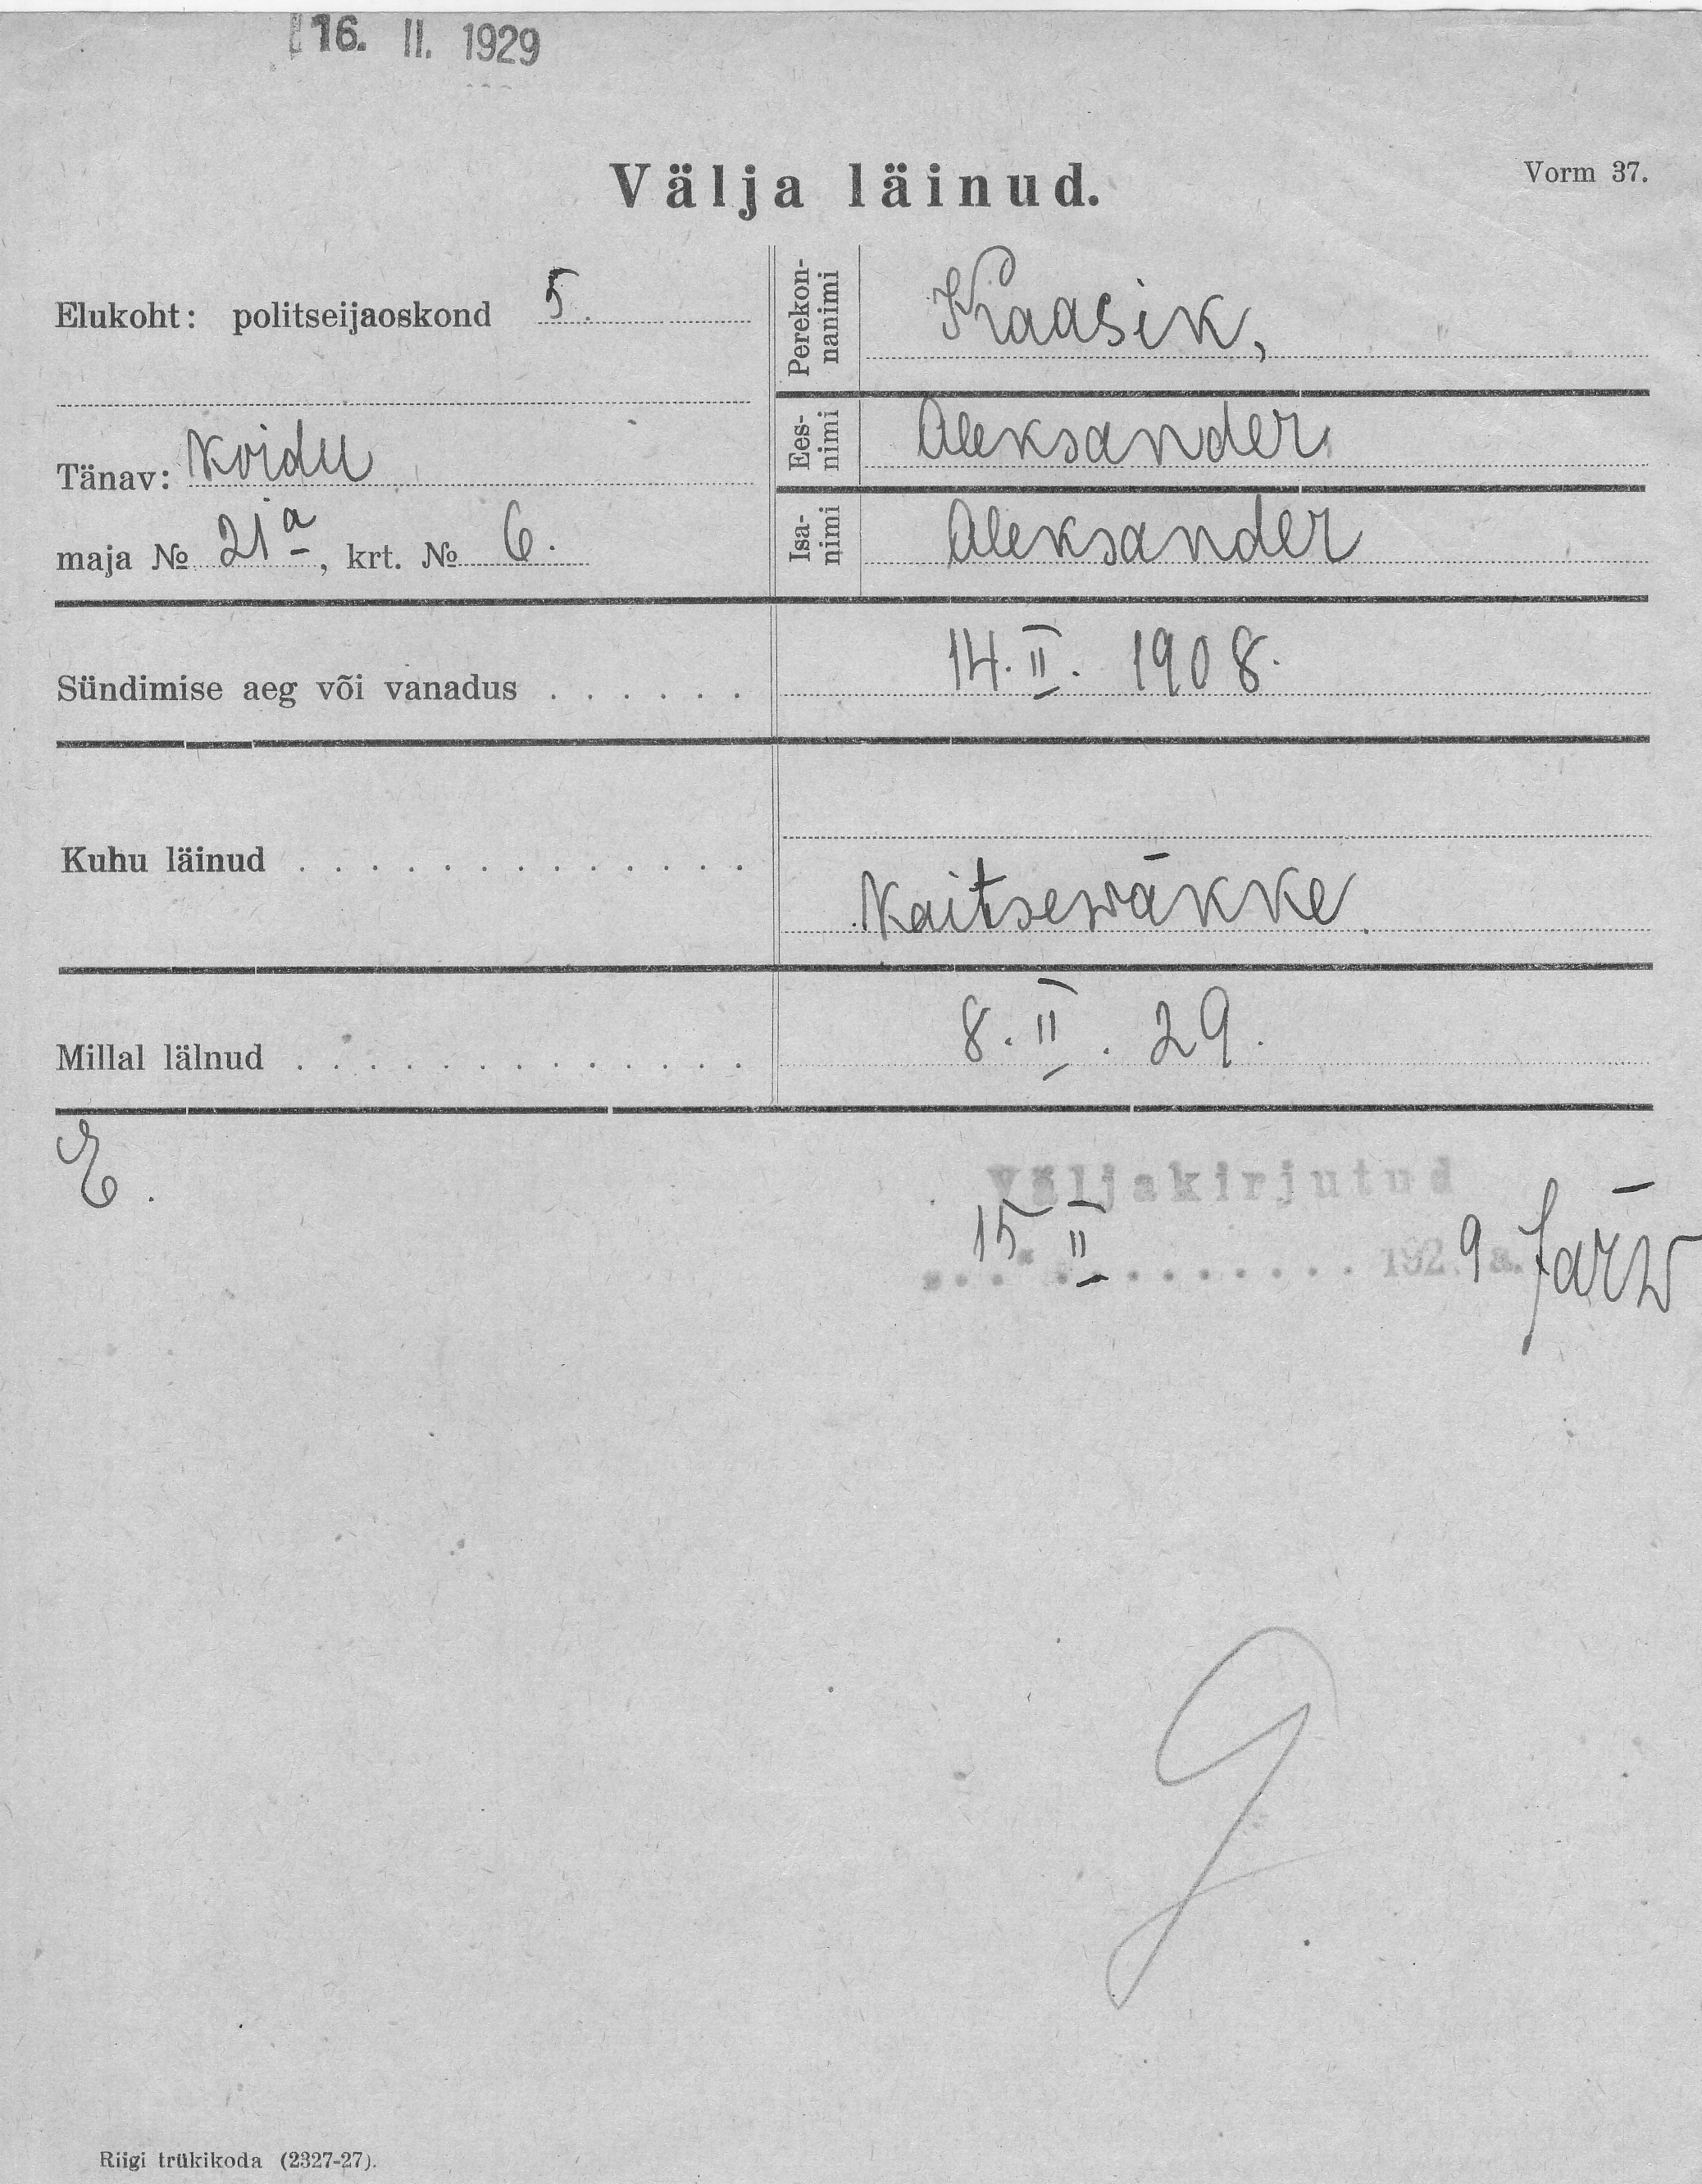 16. II. 1929
Välja läinud.
Vorm 37.
Elukoht: politseijaoskond 5.
Tänav: Koidu
maja № 21a, krt. № 6.
Perekon-
nanimi
Kaasik,
Ees-
nimi
Aleksander
Isa-
nimi
Aleksander
Sündimise aeg või vanadus . . . . . . 14. II. 1908.
Kuhu läinud . . . . . . . . . . . . . Kaitsewäkke.
Millal lälnud . . . . . . . . . . . . . 8. II. 29.
E.
Väljakirjutud
15 II 1929 a. Järw
Riigi trükikoda (2327-27).